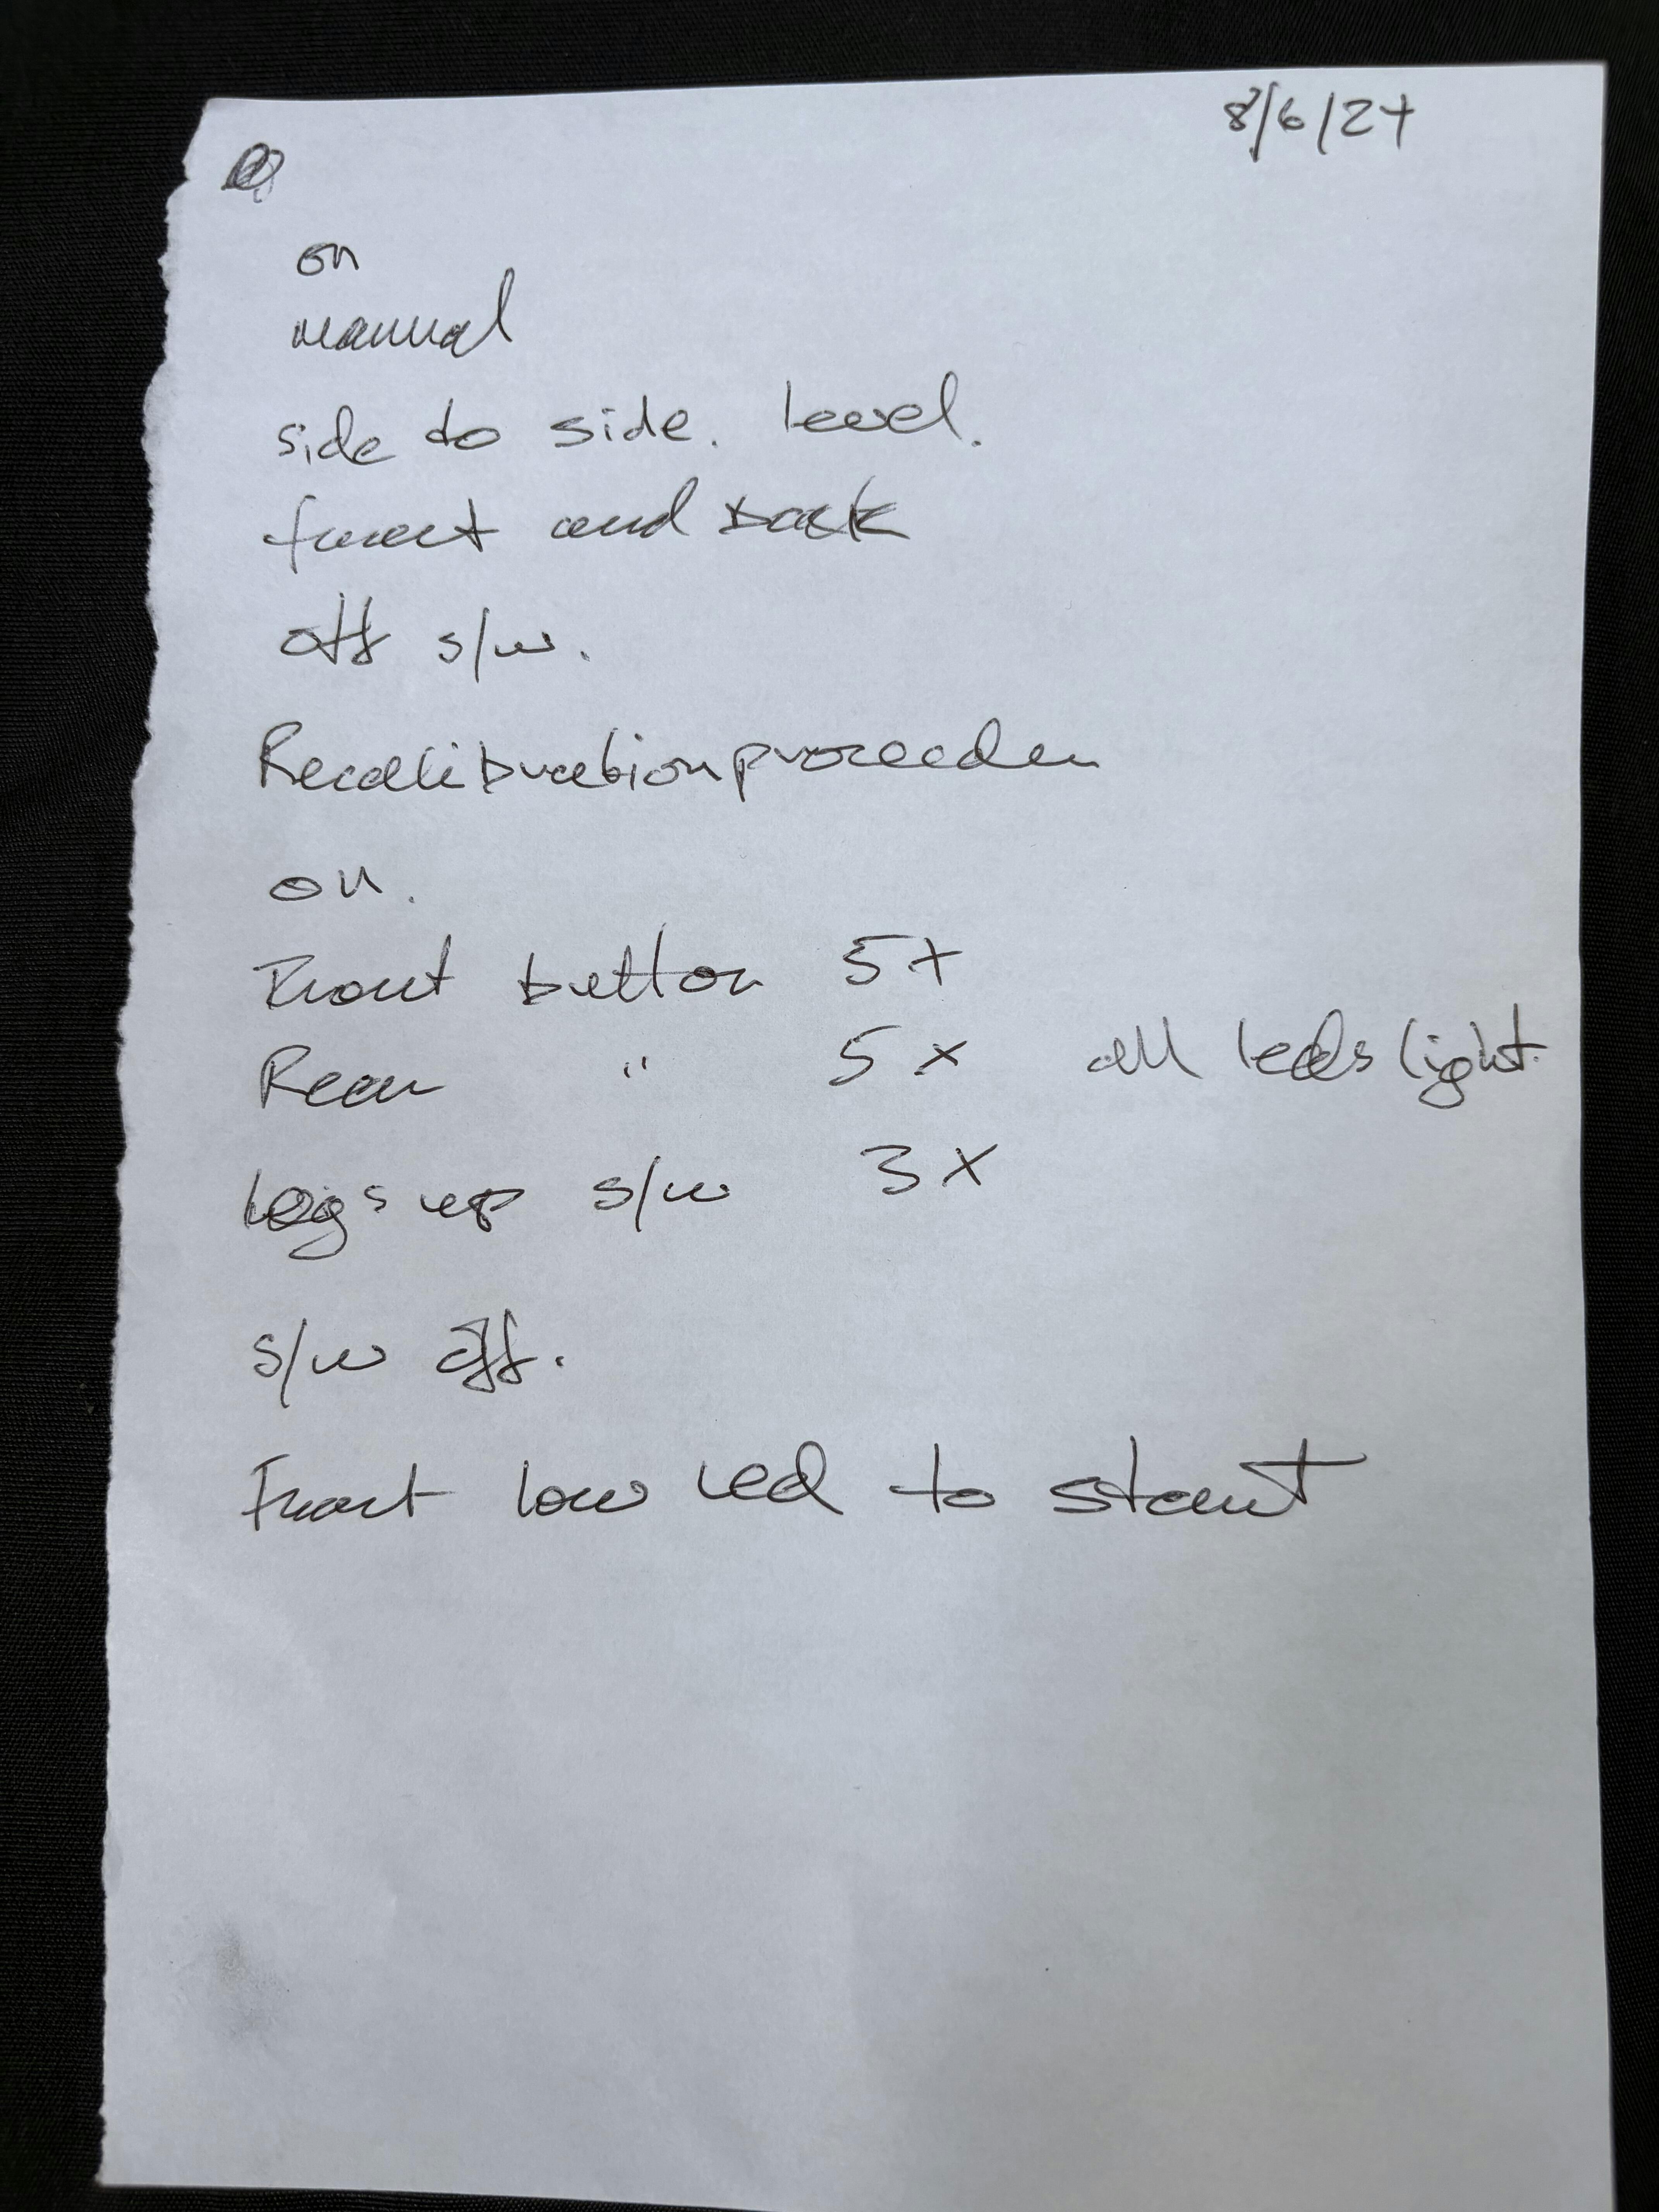 8/6/24
on
manual
side to side. level.
front and back
off s/w.
Recalibration proceedu
on.
Front button 5x
Rear " 5x all leds light.
legs up s/w 3x
s/w off.
Front low led to start